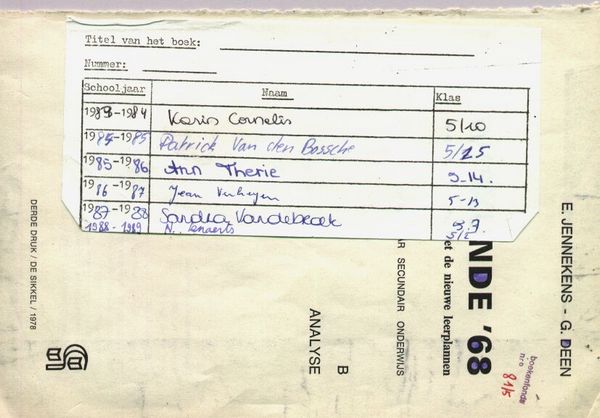 Titel van het boek:
Nummer:
Schooljaar Naam Klas
1983-1984 Karin Cornelis 5/10
1984-1985 Patrick Van den Bossche 5/25
1985-1986 Ann Therie 5-14.
1986-1987 Jean Verheyen 5-13
1987-1988 Sandra Vandebroek 5.7.
1988-1989 N. Lenaerts 5/2
E. JENNEKENS - G. DEEN
NDE '68
et de nieuwe leerplannen
AR SECUNDAIR ONDERWIJS
B
ANALYSE
boekenfonds
nro 81/5
DERDE DRUK / DE SIKKEL / 1978